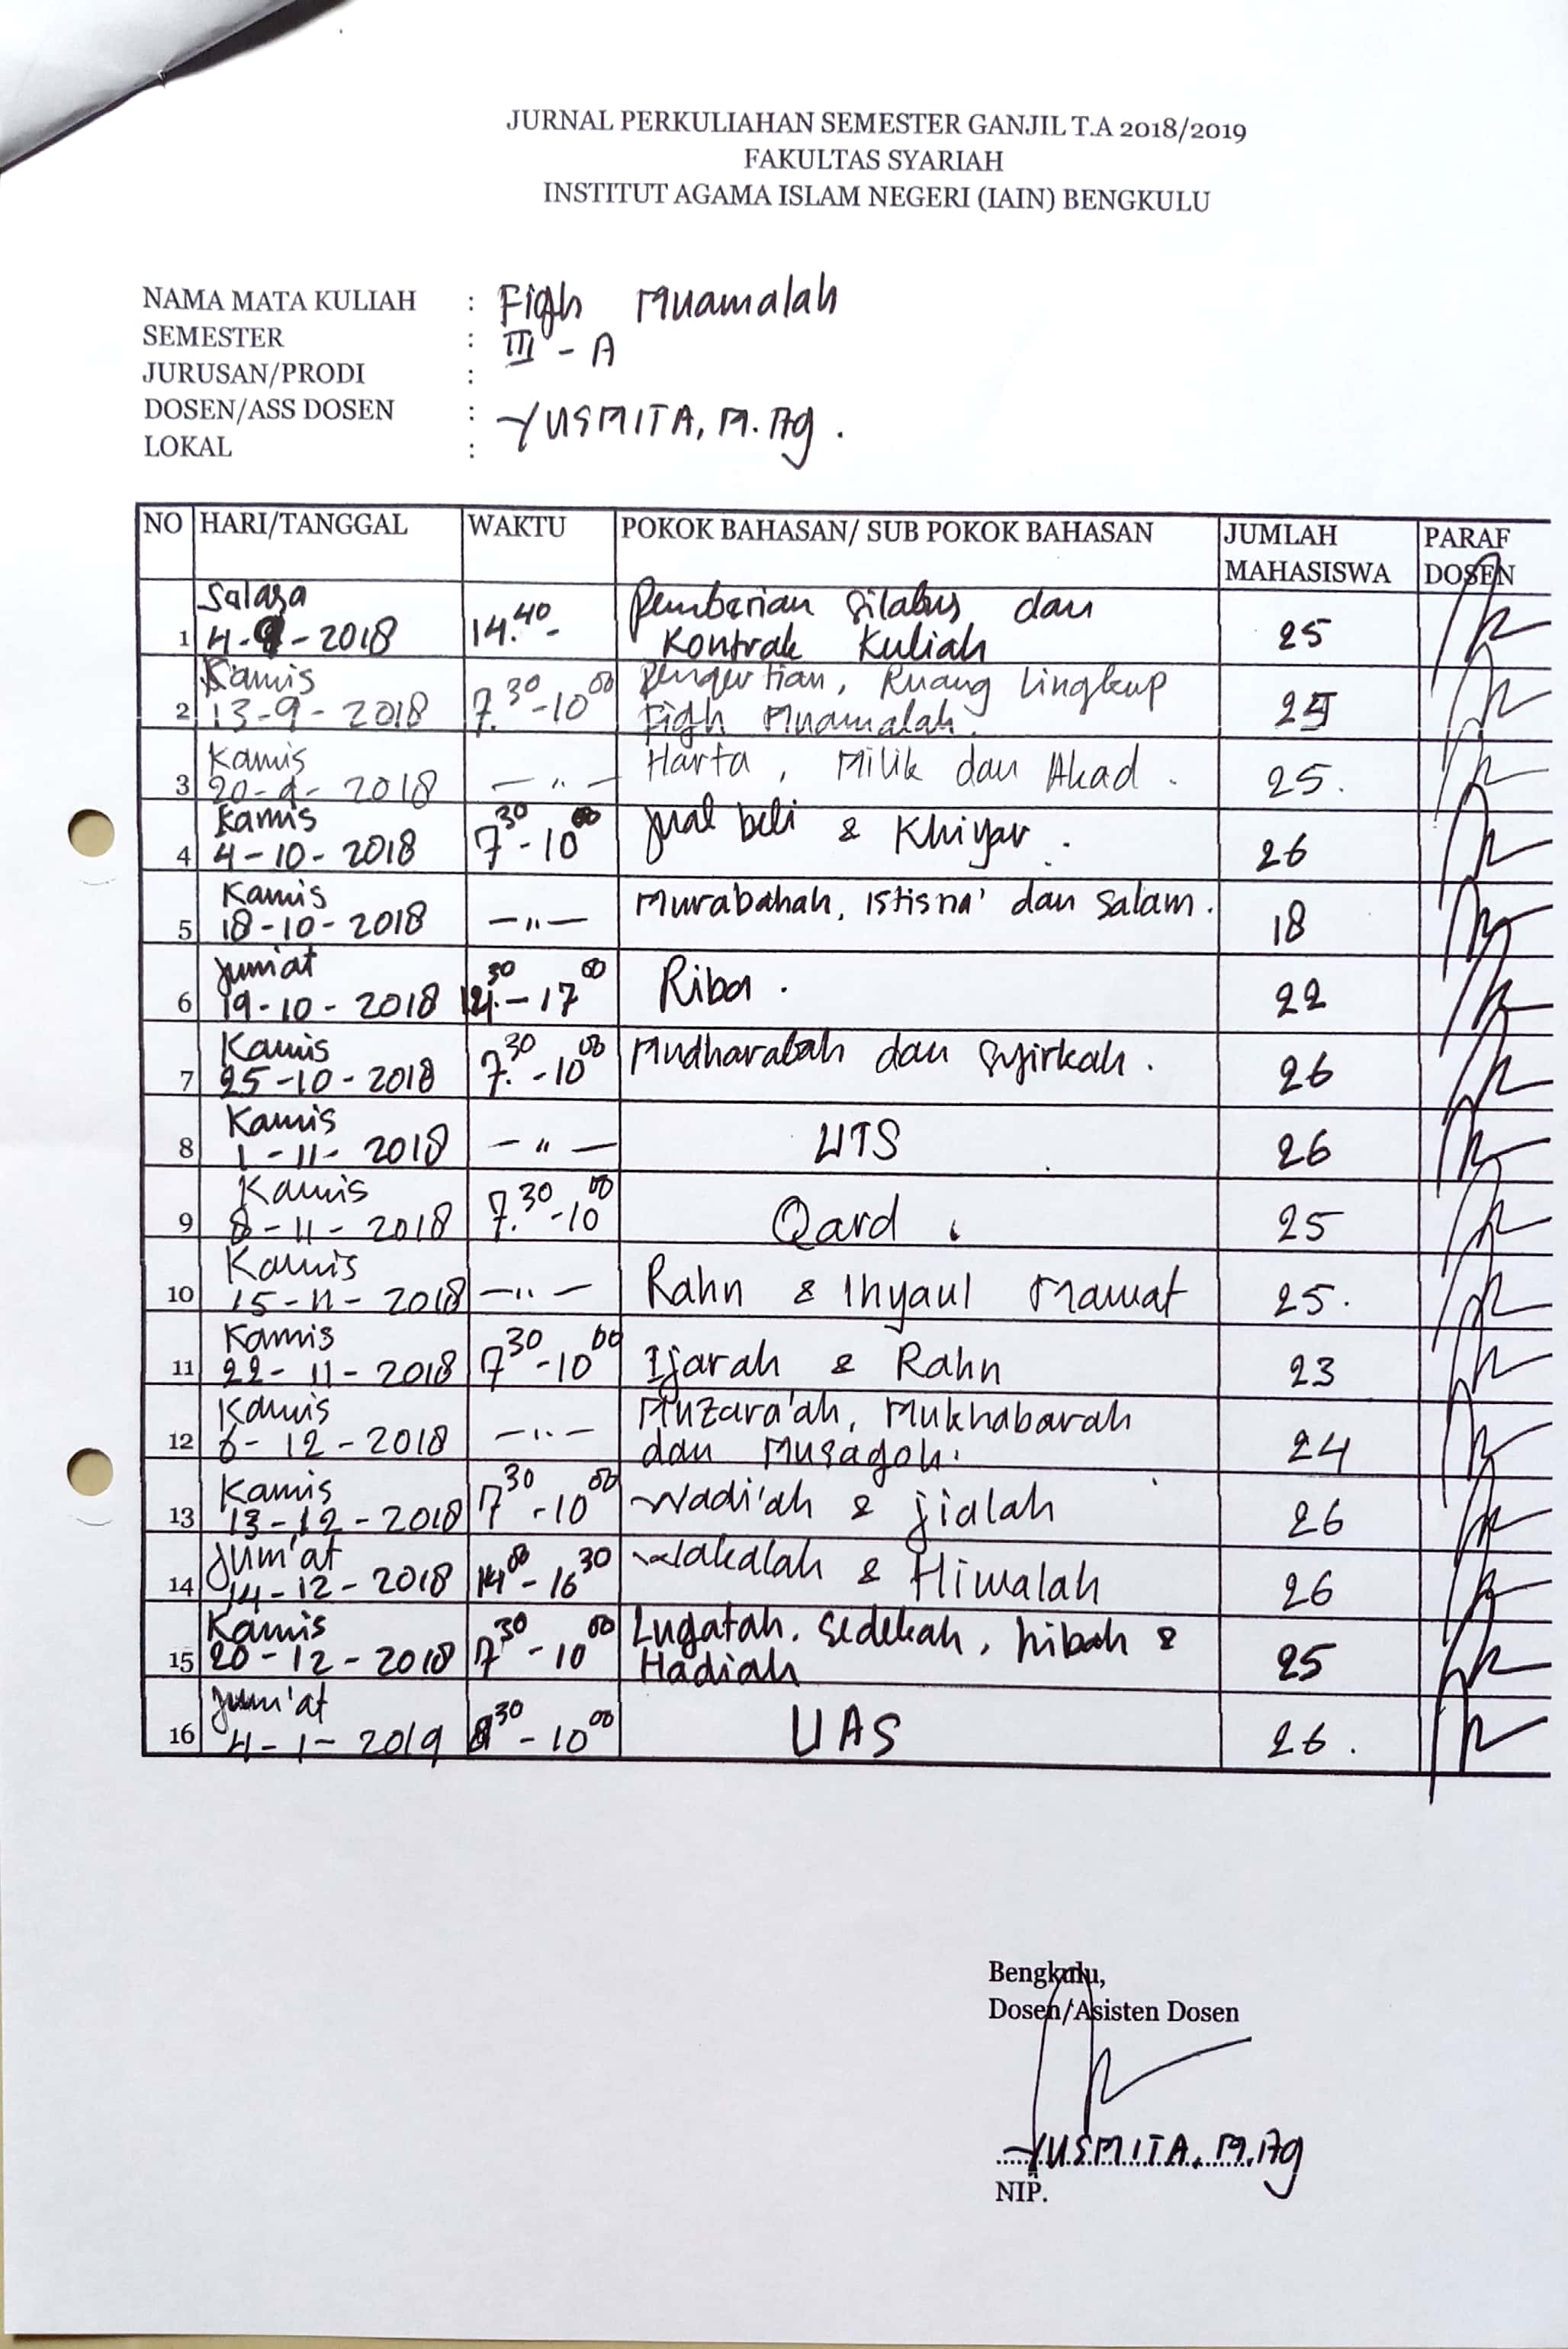 JURNAL PERKULIAHAN SEMESTER GANJIL T.A 2018/2019
FAKULTAS SYARIAH
INSTITUT AGAMA ISLAM NEGERI (IAIN) BENGKULU
NAMA MATA KULIAH : Fiqh Muamalah
SEMESTER : III - A
JURUSAN/PRODI :
DOSEN/ASS DOSEN : YUSMITA, M.Ag.
LOKAL :
NO HARI/TANGGAL WAKTU POKOK BAHASAN/ SUB POKOK BAHASAN JUMLAH MAHASISWA PARAF DOSEN
1 Salasa 4-9-2018 14.40- Pemberian Silabus dan Kontrak Kuliah 25
2 Kamis 13-9-2018 7.30-10 00 Pengertian, Ruang Lingkup Fiqh Muamalah. 25
3 Kamis 20-9-2018 — " — Harta, Milik dan Akad. 25.
4 Kamis 4-10-2018 7 30-10 00 Jual beli & Khiyar. 26
5 Kamis 18-10-2018 — " — Murabahah, istisna' dan Salam. 18
6 Jum'at 19-10-2018 14.30-17 00 Riba. 22
7 Kamis 25-10-2018 7.30-10 00 Mudharabah dan Syirkah. 26
8 Kamis 1-11-2018 — " — UTS 26
9 Kamis 8-11-2018 7.30-10 00 Qard. 25
10 Kamis 15-11-2018 — " — Rahn & Ihyaul Mawat 25.
11 Kamis 22-11-2018 7 30-10 00 Ijarah & Rahn 23
12 Kamis 6-12-2018 — " — Muzara'ah, Mukhabarah dan Musaqoh. 24
13 Kamis 13-12-2018 7 30-10 00 Wadi'ah & Jialah 26
14 Jum'at 14-12-2018 14 00-16 30 Wakalah & Hiwalah 26
15 Kamis 20-12-2018 7 30-10 00 Luqatah, Sedekah, hibah & Hadiah 25
16 Jum'at 4-1-2019 8 30-10 00 UAS 26.
Bengkulu,
Dosen/Asisten Dosen
YUSMITA, M.Ag
NIP.